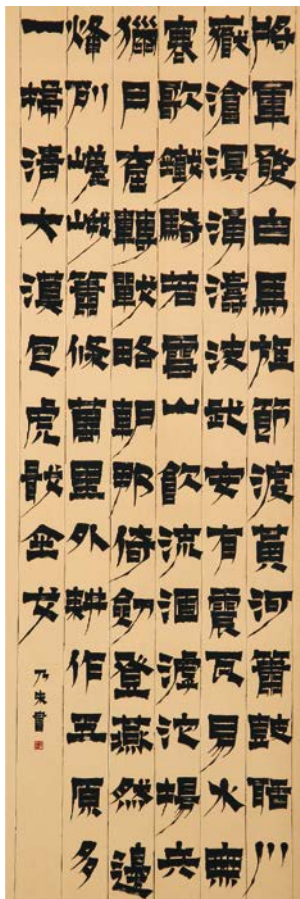 將軍發白馬旌節渡黃河簫鼓聒川
嶽滄溟湧濤波武安有震瓦易水無
寒歌鐵騎若雪山飲流涸滹沱揚兵
獵月窟轉戰略朝那倚劍登燕然邊
烽列嵯峨蕭條萬里外耕作五原多
一掃清大漠包虎戢金戈
乃書